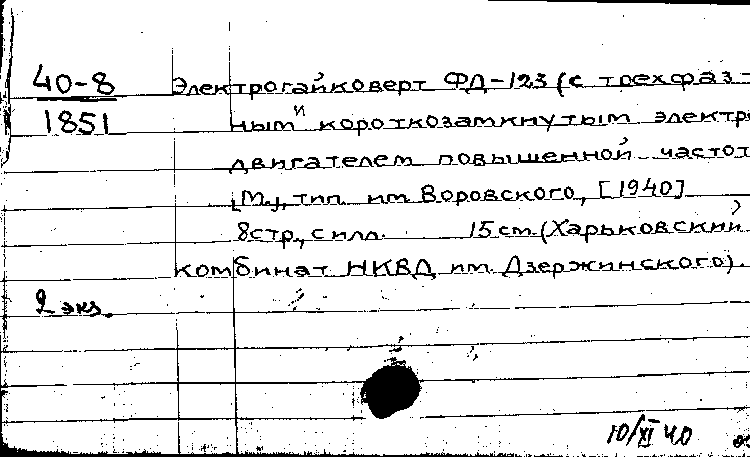 40-8
1851
Электрогайковерт ФД-123 (с трехфаз-
ным и короткозамкнутым электр
двигателем повышенной частот
[М.], тип. им Воровского, [1940]
8стр., с илл. 15 см. (Харьковский
комбинат НКВД им. Дзержинского).
2 экз.
10/XI 40